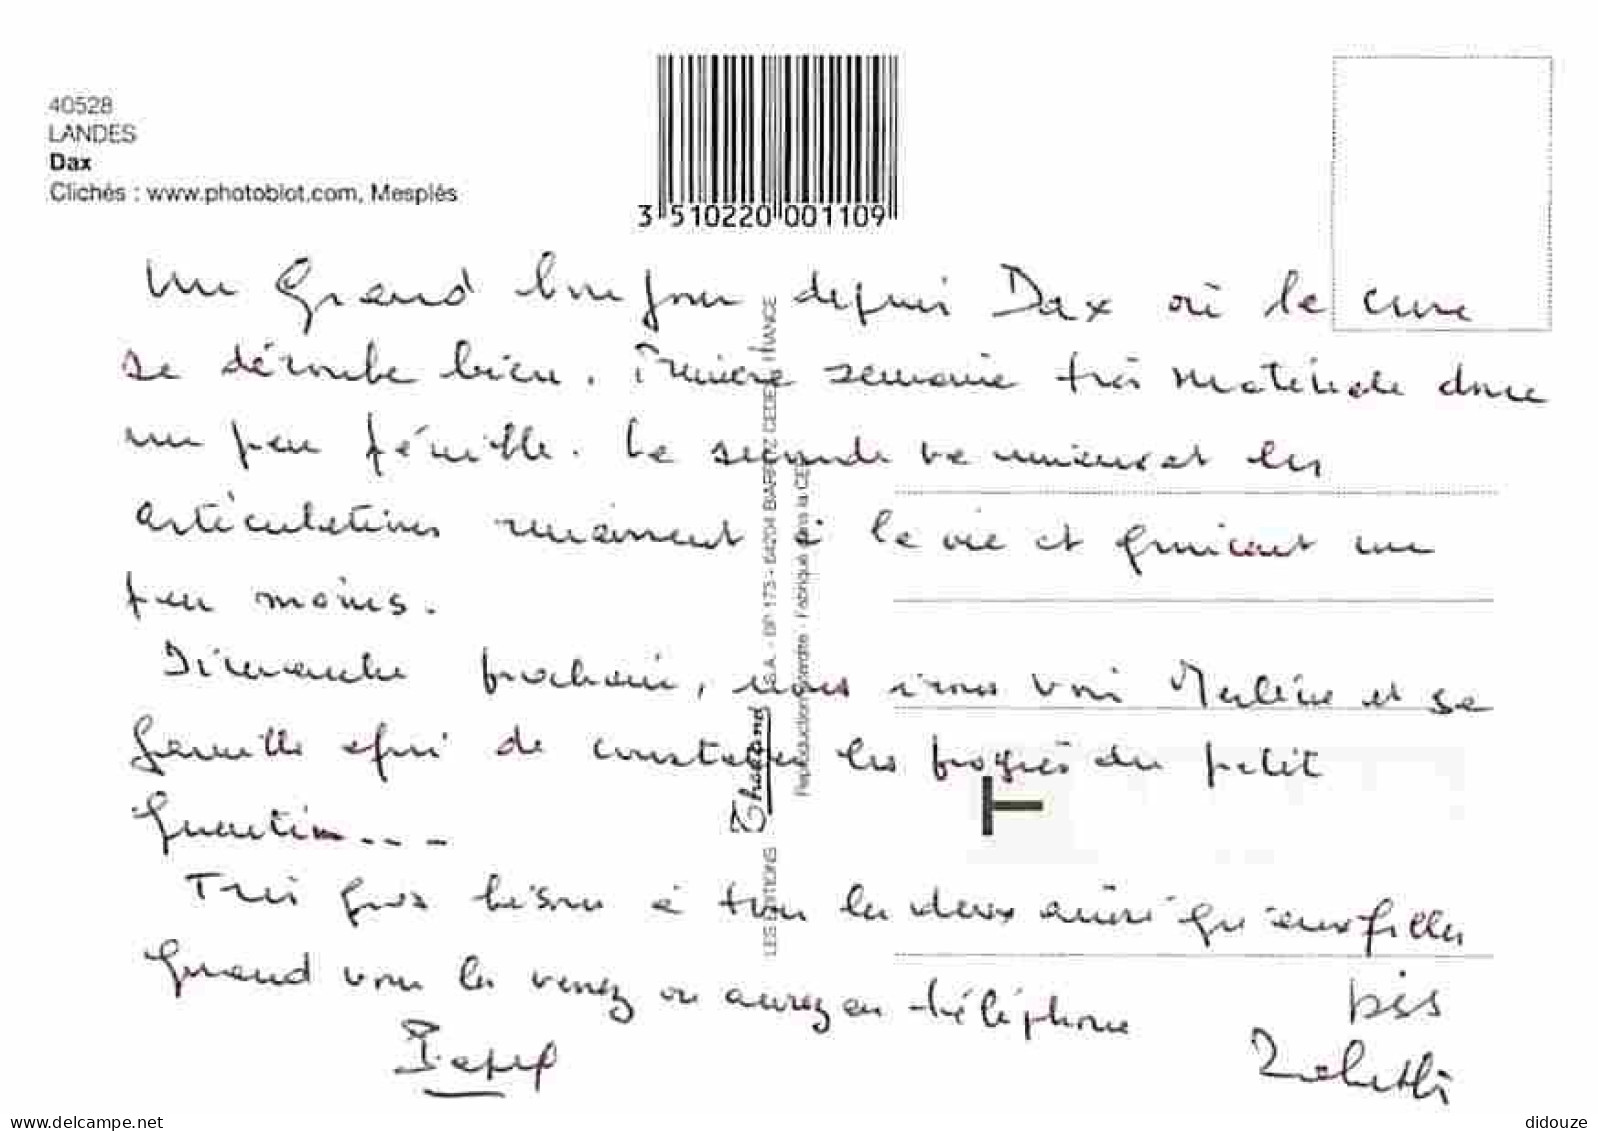 40528
LANDES
Dax
Clichés : www.photobiot.com, Mesplès
3 510220 001109
Un Grand bonjour depuis Dax où la cure
se déroule bien. Première semaine très matinale donc
un peu pénible. La seconde va mieux et les
articulations reviennent à la vie et grincent un
peu moins.
Dimanche prochain, nous irons voir Mylène et sa
famille afin de constater les progrès du petit
Quentin...
Très gros bisous à tous les deux ainsi qu'aux filles
Quand vous les verrez ou aurez au téléphone
bises
LES EDITIONS Thouand S.A. - BP 173 - 64204 BIARRITZ CEDEX FRANCE
Reproduction interdite - Fabriqué dans la CEE
delcampe.net
didouze